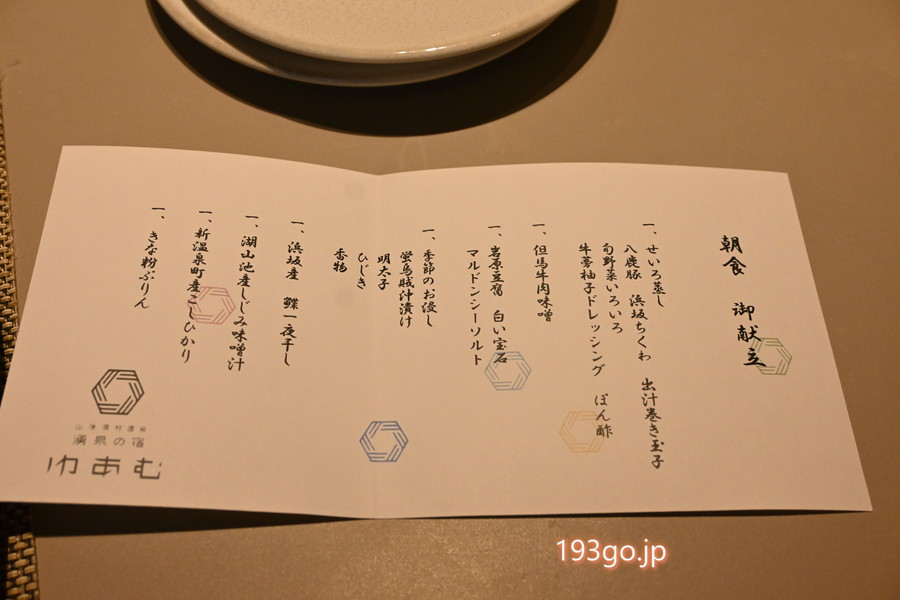 朝食　御献立
一、せいろ蒸し
八鹿豚　浜坂ちくわ　出汁巻き玉子
旬野菜いろいろ
牛蒡柚子ドレッシング　ぽん酢
一、但馬牛肉味噌
一、岩原豆腐　白い宝石
マルドンシーソルト
一、季節のお浸し
蛍烏賊沖漬け
明太子
ひじき
香物
一、浜坂産　鰈一夜干し
一、湖山池産しじみ味噌汁
一、新温泉町産こしひかり
一、きな粉ぷりん
山陰湯村温泉
湧泉の宿
ゆあむ
193go.jp